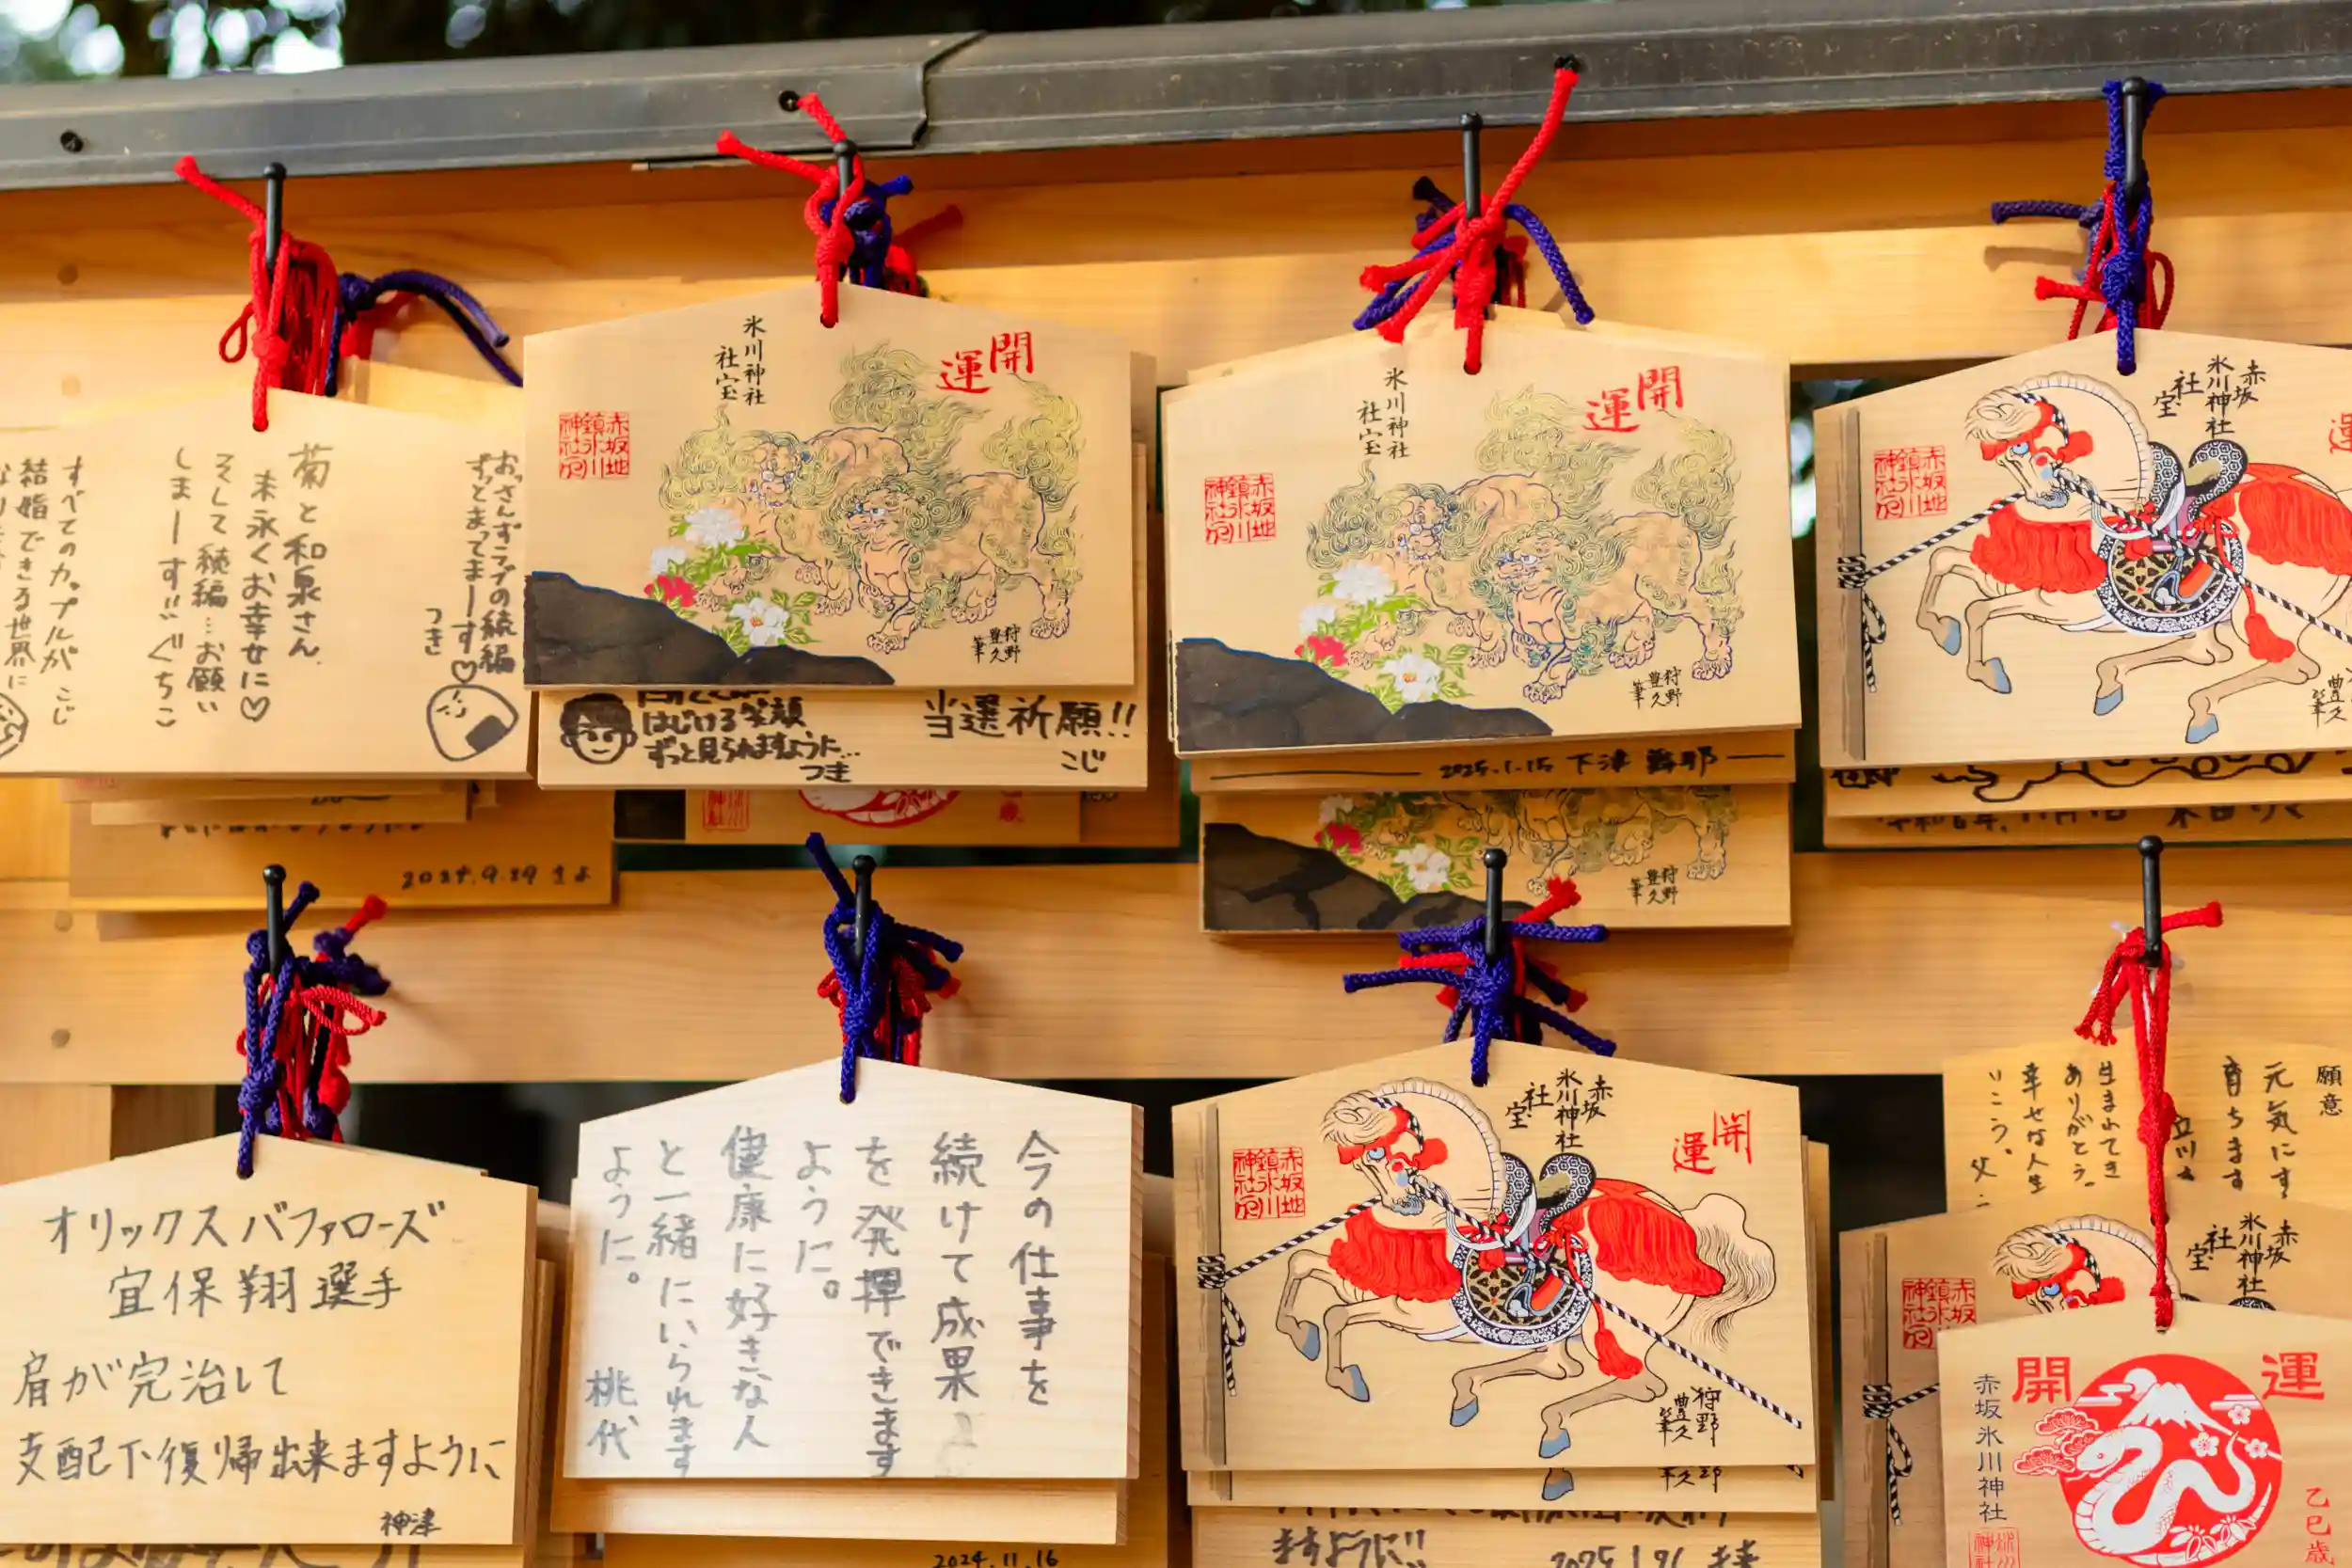 おっさんずラブの続編
ずっとまってまーす♡
つき
菊と和泉さん
末永くお幸せに♡
そして続編…お願い
しまーす!! ぐちこ
すべてのカップルが こじ
結婚できる世界に
開運
氷川神社
社宝
赤坂地
鎮氷川
神社印
狩野
豊久
筆
はじける笑顔
ずっと見られますように…
つき
当選祈願!!
こじ
2024.9.29
開運
氷川神社
社宝
赤坂地
鎮氷川
神社印
狩野
豊久
筆
2025.1.15 下津
狩野
豊久
筆
赤坂
氷川神社
社宝
運
赤坂地
鎮氷川
神社印
豊久
筆
オリックスバファローズ
宜保翔選手
肩が完治して
支配下復帰出来ますように
神津
今の仕事を
続けて成果
を発揮できます
ように。
健康に好きな人
と一緒にいられます
ように。 桃代
2024.11.16
開運
赤坂
氷川神社
社宝
赤坂地
鎮氷川
神社印
狩野
豊久
筆
ますように!!
願意
元気にす
育ちます
立川
生まれてき
ありがとう。
幸せな人生
いこう。 父
赤坂
氷川神社
社宝
赤坂地
鎮氷川
神社印
開運
赤坂氷川神社
乙巳歳